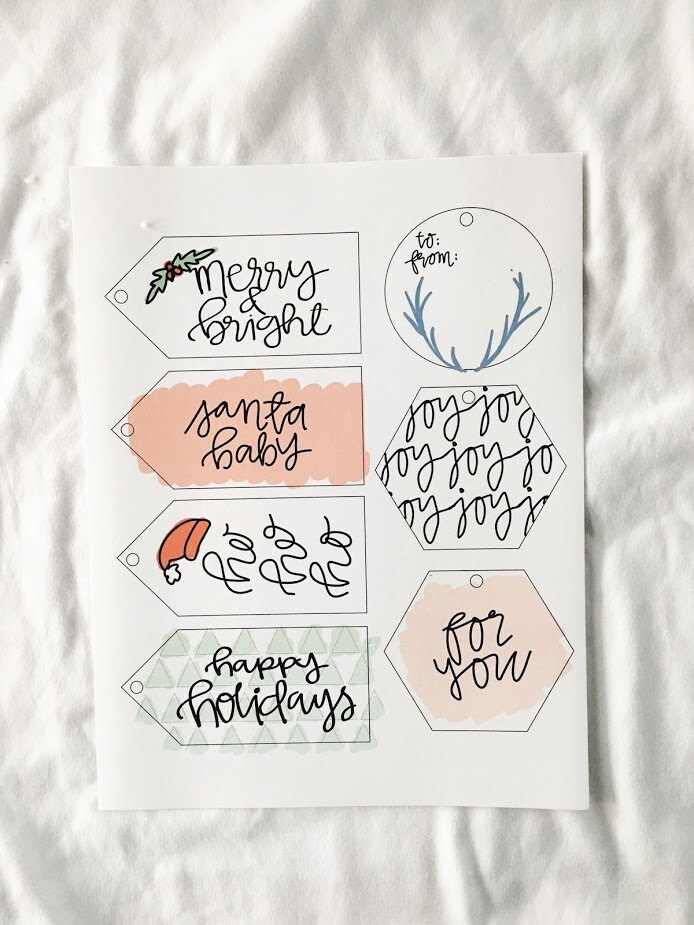 merry
&
bright
santa
baby
happy
holidays
to:
from:
joy joy
joy joy jo
oy joy j
for
you